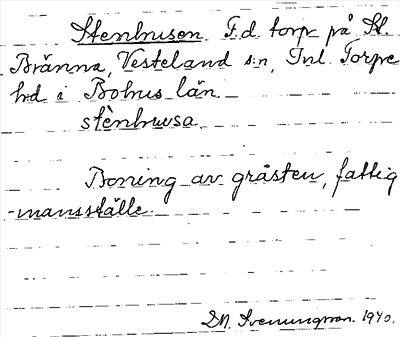 Stenhusen. F.d. torp på St.
Bränna, Vesteland s:n, Inl. Torpe
hd i Bohus län.
stènhuvsa.
Boning av gråsten, fattig
-mansställe.
D.N. Svenungsson. 1940.